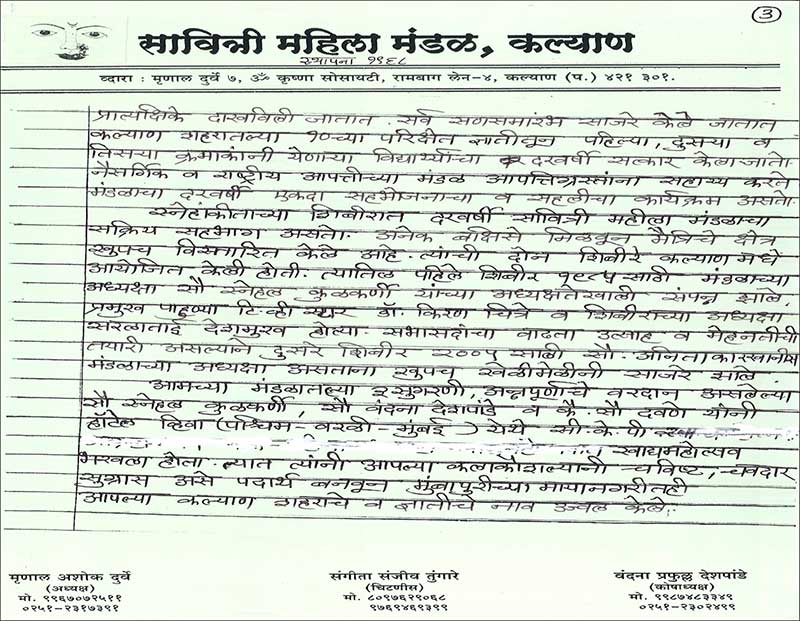 ③
सावित्री महिला मंडळ, कल्याण
स्थापना १९६८
व्दारा : मृणाल दुर्वे ७, ॐ कृष्णा सोसायटी, रामबाग लेन-४, कल्याण (प.) ४२१ ३०१.
प्रात्यक्षिके दाखविली जातात. सर्व सणसमारंभ साजरे केले जातात
कल्याण शहरातल्या १०च्या परिक्षेत ज्ञातीतून पहिल्या, दुसऱ्या व
तिसऱ्या क्रमाकांनी येणाऱ्या विद्यार्थ्यांचा दरवर्षी सत्कार केला जातो.
नैसर्गिक व राष्ट्रीय आपत्तीच्या मंडळ आपत्तिग्रस्तांना सहाय्य करते
मंडळाचा दरवर्षी एकदा सहभोजनाचा व सहलीचा कार्यक्रम असतो.
स्नेहांकीताच्या शिबीरात दरवर्षी सावित्री महीला मंडळाचा
सक्रिय सहभाग असतो. अनेक बक्षिसे मिळवून मैत्रिचे क्षेत्र
खूपच विस्तारित केले आहे. त्यांची दोन शिबीरे कल्याण मधे
आयोजित केली होती. त्यातिल पहिले शिबीर १९८५ साठी मंडळाच्या
अध्यक्षा सौ स्नेहल कुळकर्णी यांच्या अध्यक्षतेखाली संपन्न झाले.
प्रमुख पाहुण्या टि.व्ही स्टार डॉ. किरण चित्रे व शिबीराच्या अध्यक्षा
सरलाताई देशमुख होत्या. सभासदांचा वाढता उत्साह व मेहनतीची
तयारी असल्याने दुसरे शिबीर २००५ साली सौ. अनिता कारखानीस
मंडळाच्या अध्यक्षा असताना खूपच खेळीमेळीनी साजरे झाले.
आमच्या मंडळातल्या सुगरणी, अन्नपूर्णाचे वरदान असलेल्या
सौ स्नेहल कुळकर्णी, सौ वंदना देशपांडे व कै. सौ दवणे यांनी
हॉटेल व्हिवा (पश्चिम-वरळी-मुंबई) येथे सी.के.पी
खाद्यमहोत्सव
भरवला होता. त्यात त्यांनी आपल्या कलाकौशल्यानी चविष्ट, चवदार
सुग्रास असे पदार्थ बनवून मुंबापुरीच्या मायानगरीतही
आपल्या कल्याण शहराचे व ज्ञातीचे नाव उज्वल केले.
मृणाल अशोक दुर्वे
(अध्यक्ष)
मो. ९९६७०७२५११
०२५१-२३१७३९१
संगीता संजीव तुंगारे
(चिटणीस)
मो. ८०९७६२९०६८
९७६९४६९३९९
वंदना प्रफुल्ल देशपांडे
(कोषाध्यक्ष)
मो. ९९८७४८३३४९
०२५१-२३०२४९९